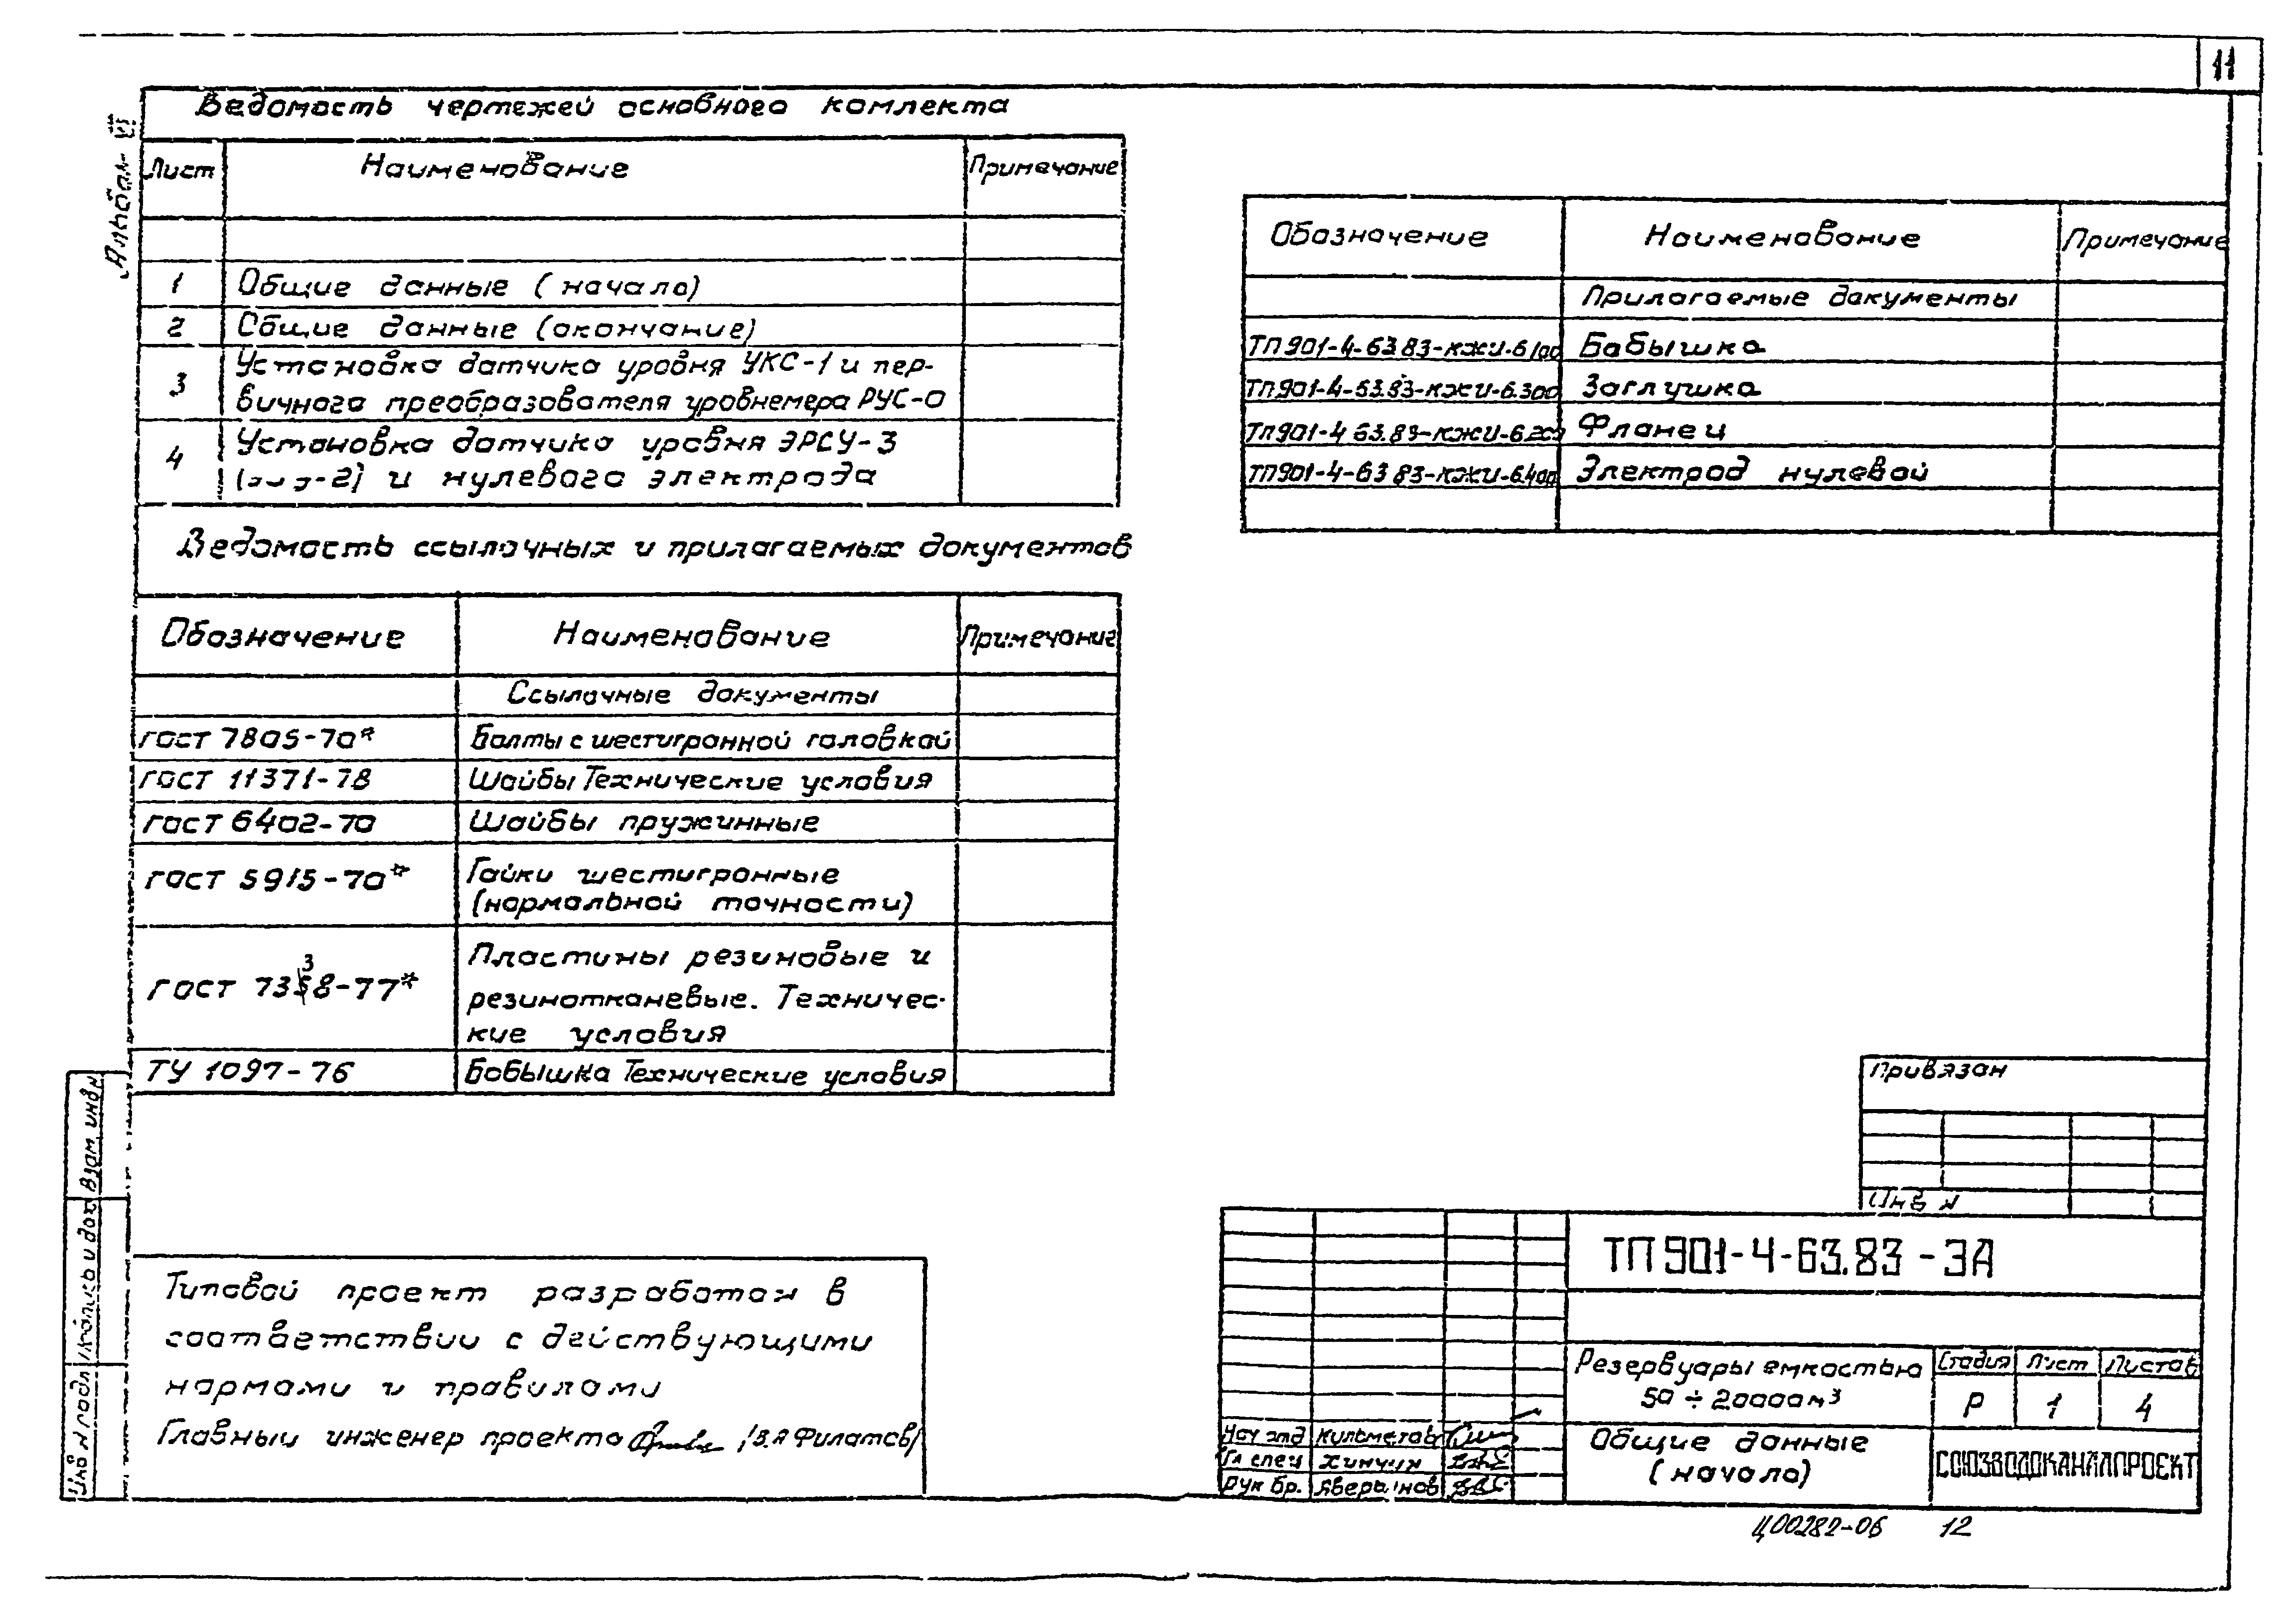 11
Альбом VI
Ведомость чертежей основного комлекта
Лист Наименование Примечание
1 Общие данные (начало)
2 Общие данные (окончание)
3 Установка датчика уровня УКС-1 и пер-
вичного преобразователя уровнемера РУС-0
4 Установка датчика уровня ЭРСУ-3
и нулевого электрода
Ведомость ссылочных и прилагаемых документов
Обозначение Наименование Примечание
Ссылочные документы
ГОСТ 7805-70* Болты с шестигранной головкой
ГОСТ 11371-78 Шайбы Технические условия
ГОСТ 6402-70 Шайбы пружинные
ГОСТ 5915-70* Гайки шестигранные
(нормальной точности)
ГОСТ 7338-77* Пластины резиновые и
резинотканевые. Техничес-
кие условия
ТУ 1097-76 Бобышка Технические условия
Обозначение Наименование Примечание
Прилагаемые документы
ТП 901-4-63.83-КЖИ-6.100 Бобышка
ТП 901-4-63.83-КЖИ-6.300 Заглушка
ТП 901-4-63.83-КЖИ-6.200 Фланец
ТП 901-4-63.83-КЖИ-6.400 Электрод нулевой
Типовой проект разработан в
соответствии с действующими
нормами и правилами
Главный инженер проекта /З.Я Филатов/
Взам. инв. №
Подпись и дата
Инв № подл
Привязан
Инв №
ТП 901-4-63.83-ЭА
Резервуары емкостью
50 ÷ 20000 м³
Стадия Лист Листов
Р 1 4
Нач отд
Гл спец Хинчин
Рук бр.
Общие данные
(начало)
СОЮЗВОДОКАНАЛПРОЕКТ
Ц00282-06 12